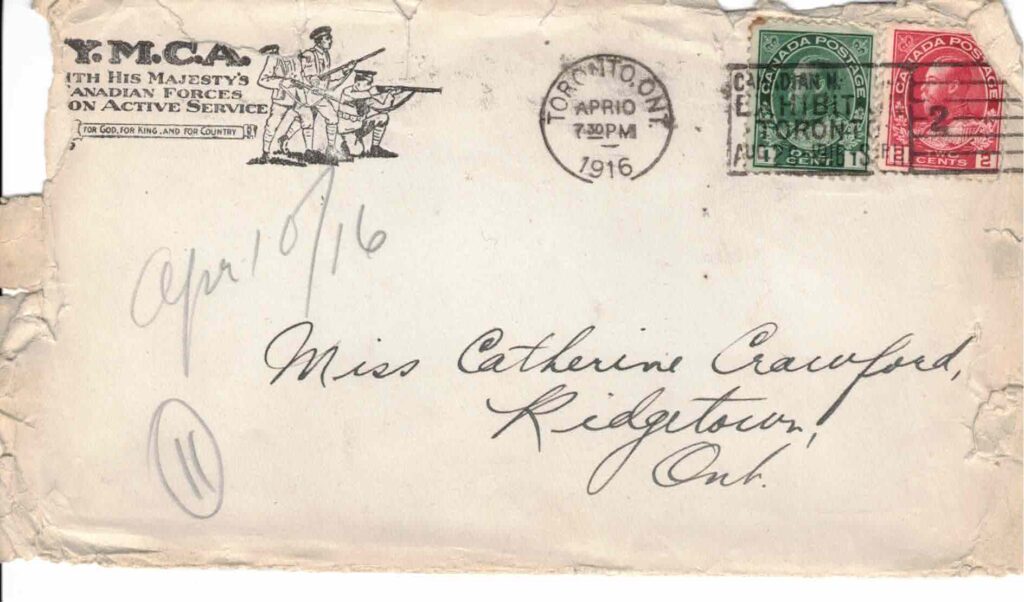 Y.M.C.A.
ITH HIS MAJESTY'S
ANADIAN FORCES
ON ACTIVE SERVICE
FOR GOD, FOR KING, AND FOR COUNTRY
TORONTO, ONT.
APR 10
7-30 PM
1916
CANADA POSTAGE
1 CENT 1
CANADA POSTAGE
2
2 CENTS 2
Apr 10/16
Miss Catherine Crawford,
Ridgetown,
Ont.
11